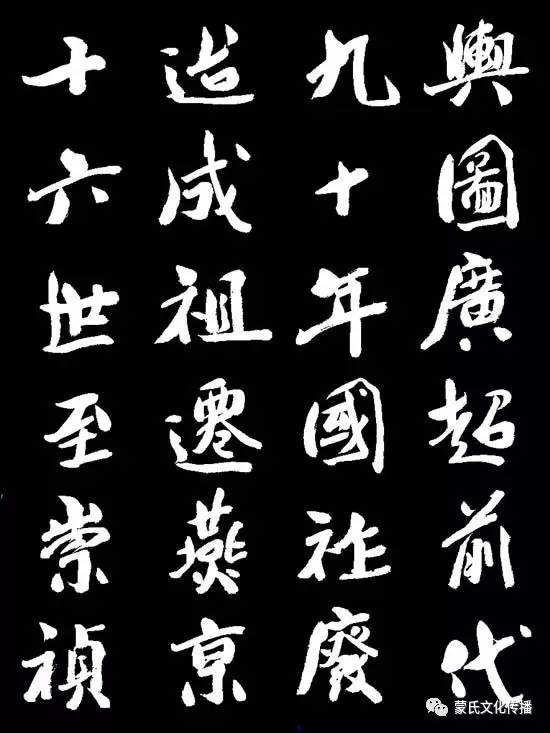 輿圖廣超前代
九十年國祚廢
迨成祖遷燕京
十六世至崇禎
蒙氏文化传播